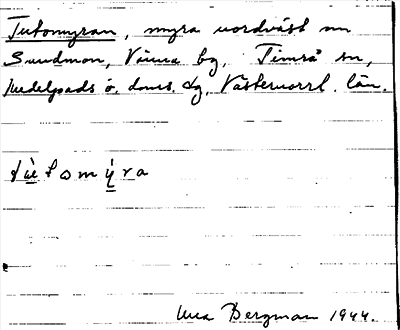 Tutomyran, myra nordväst om
Sundmon, Vänna by, Timrå sn,
Medelpads ö. doms. dg, Västernorrl. län.
Bergman 1944.